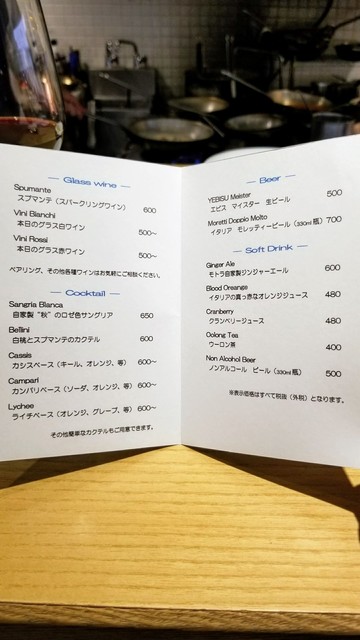 — Glass wine —
Spumante
スプマンテ（スパークリングワイン） 600
Vini Bianchi
本日のグラス白ワイン 500~
Vini Rossi
本日のグラス赤ワイン 500~
ペアリング、その他各種ワインはお気軽にご相談ください。
— Cocktail —
Sangria Bianca
自家製 "秋" のロゼ色サングリア 650
Bellini
白桃とスプマンテのカクテル 600
Cassis
カシスベース（キール、オレンジ、等） 600~
Campari
カンパリベース（ソーダ、オレンジ、等） 600~
Lychee
ライチベース（オレンジ、グレープ、等） 600~
その他簡単なカクテルもご用意できます。
— Beer —
YEBISU Meister
エビス マイスター 生ビール 500
Moretti Doppio Molto
イタリア モレッティービール（330ml 瓶） 700
— Soft Drink —
Ginger Ale
モトラ自家製ジンジャーエール 600
Blood Oreange
イタリアの真っ赤なオレンジジュース 480
Cranberry
クランベリージュース 480
Oolong Tea
ウーロン茶 400
Non Alcohol Beer
ノンアルコール ビール（330ml 瓶） 500
※表示価格はすべて税抜（外税）となります。